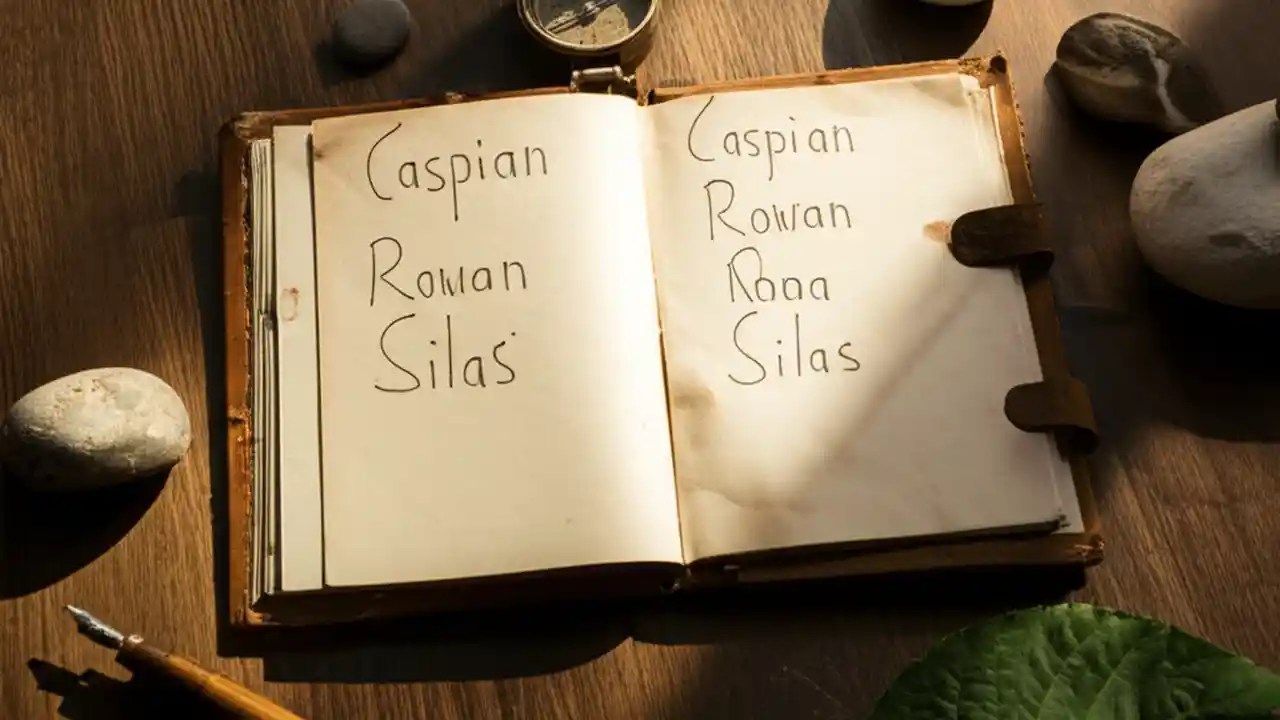 Caspian
Rowan
Silas
Caspian
Rowan
Silas